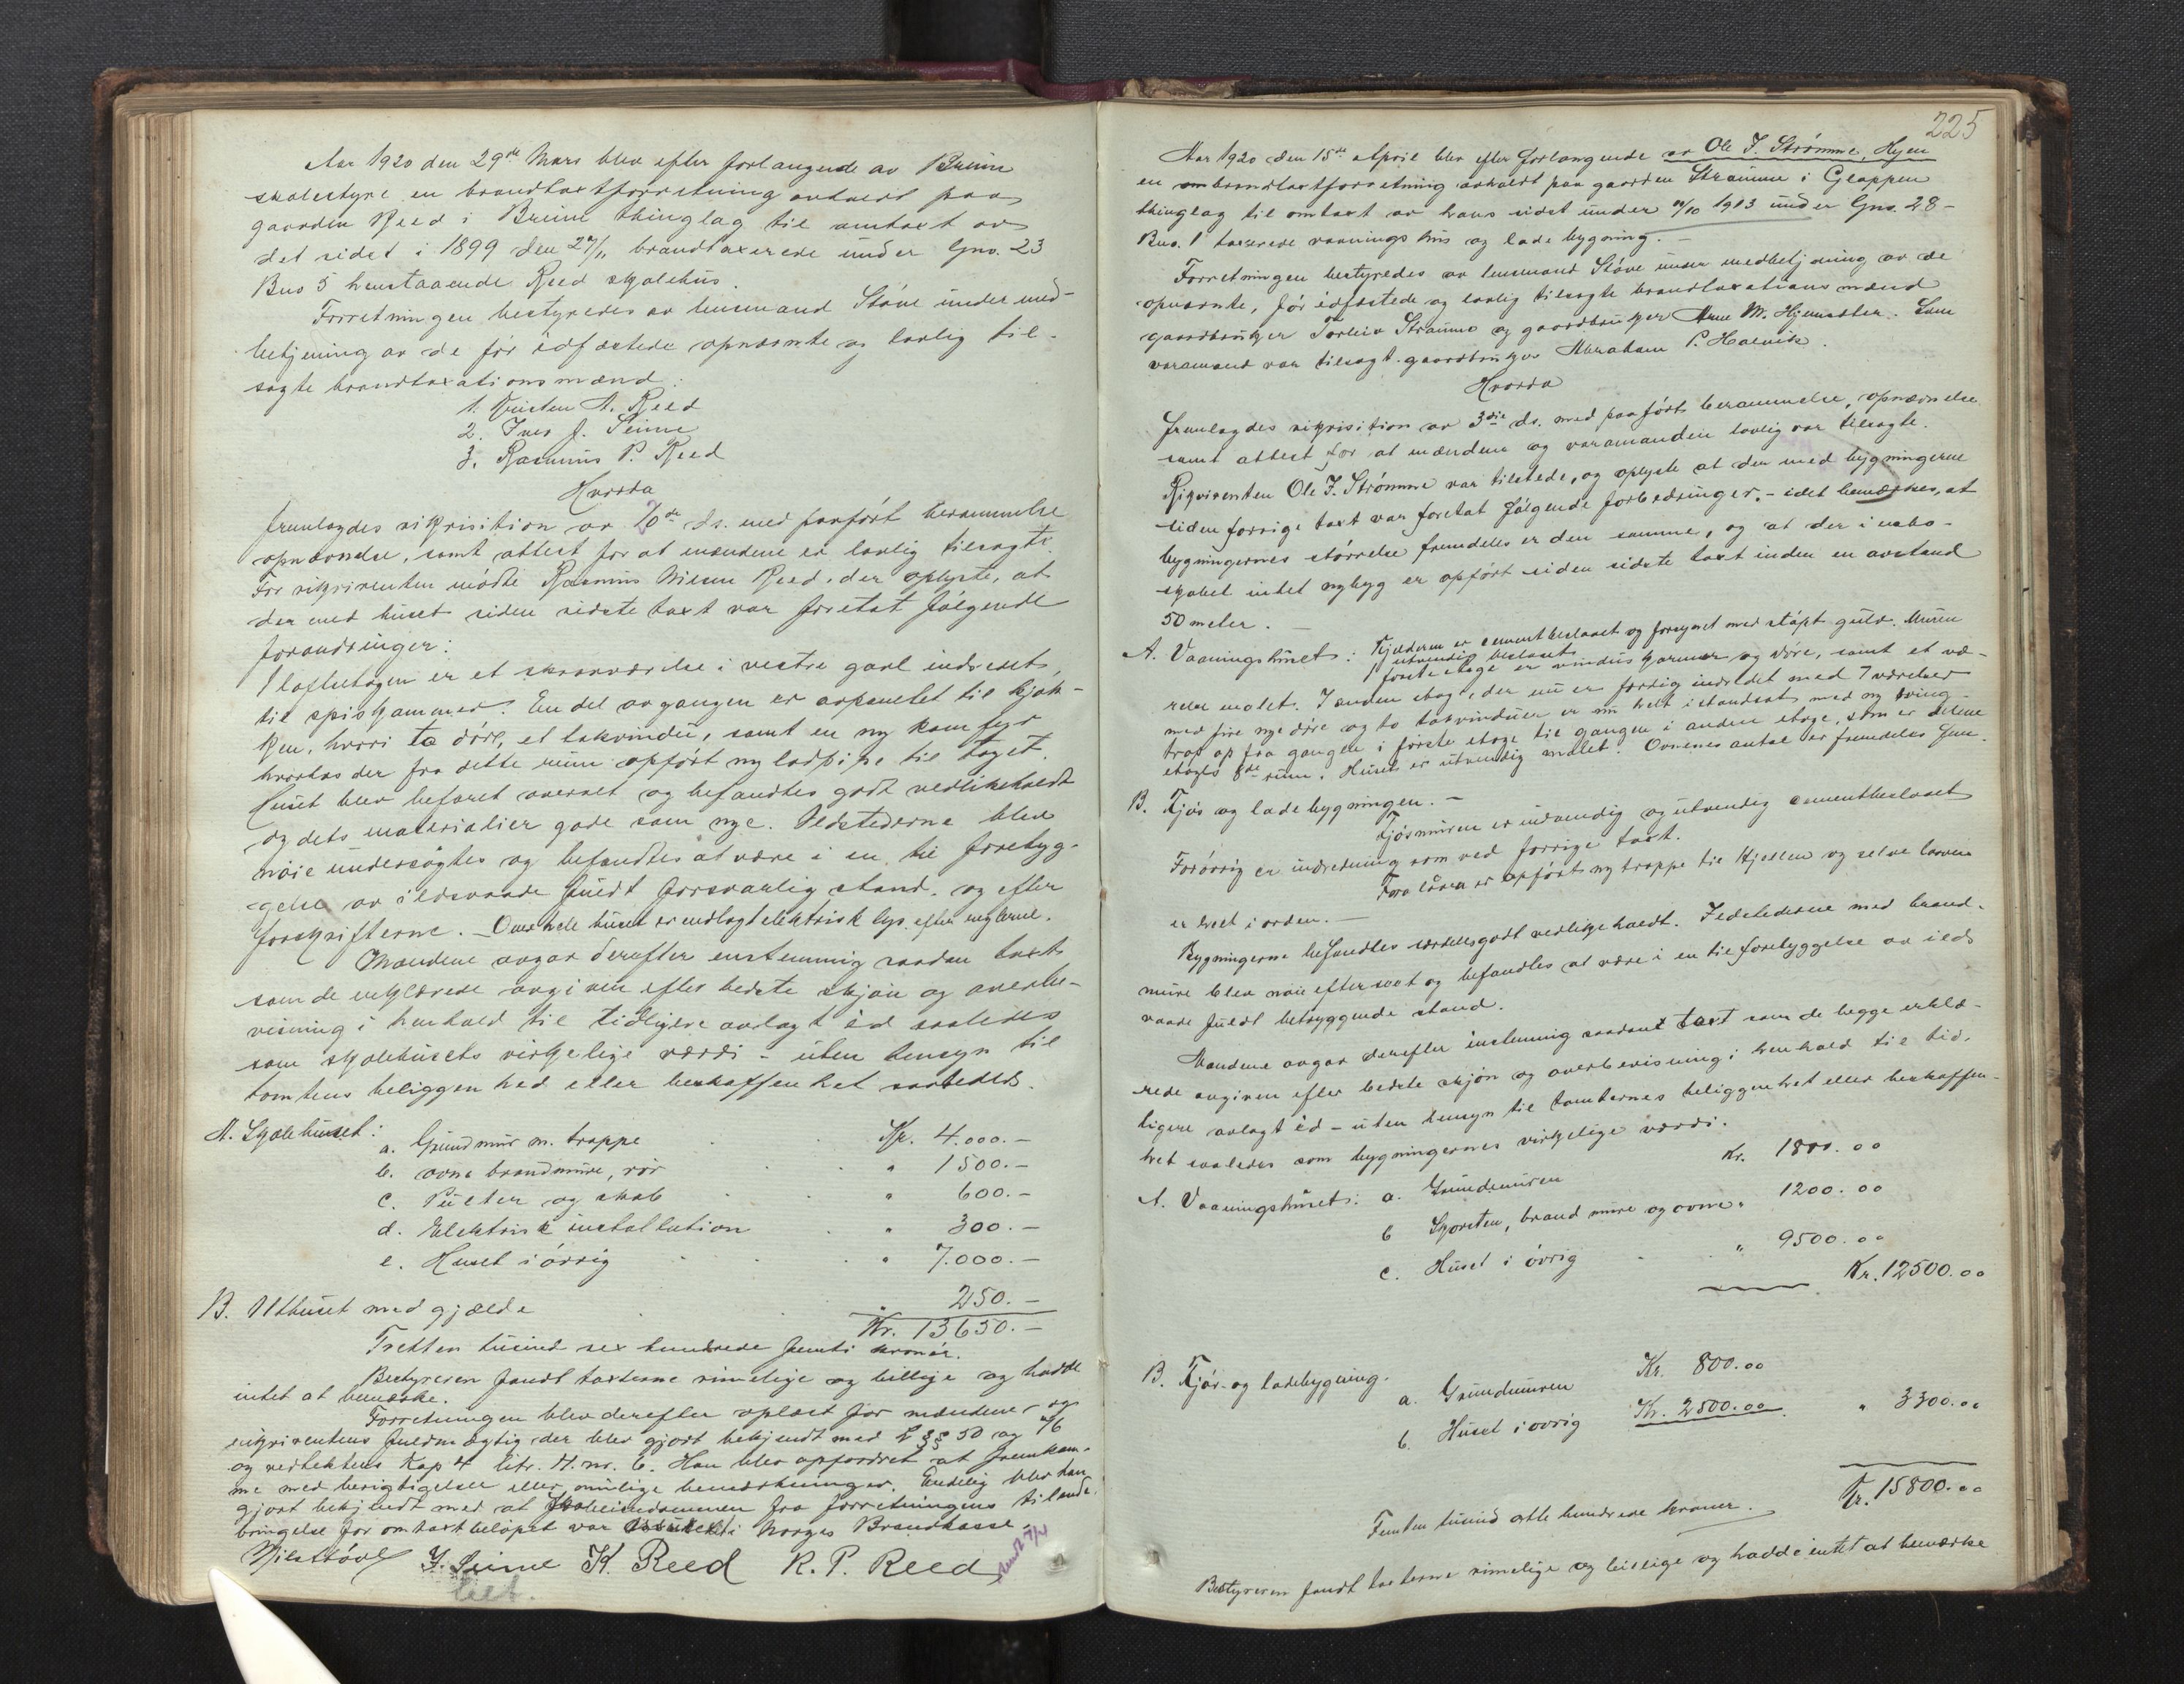 Aar 1920 den 29de Mars blev efter forlangende av Breim
skolestyre en brandtaxtforretning avholdt paa
gaarden Reed i Breim thinglag til omtaxt av
det sidst i 1899 den 27/11 brandtaxerede under Gno. 23
Bno 5 henstaaende Reed skolehus.
Forretningen bestyredes av lensmand Støve under med-
betjening av de før edfæstede opnævnte og lovlig til-
sagte brandtaxationsmænd:
1. Kristen A. Reed
2. Iver J. Seime
3. Rasmus P. Reed
Hvorda
fremlagdes rikvisition av 6te ds. med paaført berammelse
opnævnelse, samt attest for at mændene er lovlig tilsagte.
For rikvirenten mødte Rasmus Nilsen Reed, der oplyste, at
der med huset siden sidste taxt var foretat følgende
forandringer:
I loftsetagen er et skraaværelse i vestre gavl indredet
til spiskammer. En del av gangen er avpanelet til kjøk-
ken, hvori to døre, et takvindu, samt en ny komfyr
hvorhos der fra dette rum opført ny ladpipe til taget.
Huset blev befaret overalt og befandtes godt vedlikeholdt
og dets materialier gode som nye. Ildstederne blev
nøie undersøgtes og befandtes at være i en til forebyg-
gelse av ildsvaade fuldt forsvarlig stand, og efter
forskrifterne. - Over hele huset er indlagt elektrisk lys efter reglerne.
Mændene avgav derefter enstemmig saadan taxt
som de erklærede avgiven efter bedste skjøn og overbe-
visning i henhold til tidligere avlagt ed saaledes
som skolehusets virkelige værdi - uten hensyn til
tomtens beliggenhed eller beskaffenhet saaledes.
A. Skolehuset:
a. Grundmur m. trappe Kr. 4.000.-
b. ovne brandmure, rør " 1500.-
c. Pulter og skab " 600.-
d. Elektrisk installation " 300.-
e. Huset i øvrig " 7.000.-
B. Uthuset med gjælde " 250.-
Kr. 13650.-
Tretten tusind sex hundrede femti kroner.
Bestyreren fandt taxterne rimelige og billige og hadde
intet at bemærke.
Forretningen blev derefter oplæst for mændene, og
rikvirentens fuldmægtig der blev gjort bekjendt med L §§ 50 og 76
og vedtektens Kap 4 litr. H. nr. 6. Han blev opfordret at fremkom-
me med berigtigelser eller mulige bemærkninger. Endelig blev han
gjort bekjendt med at skoleeiendommen fra forretningens tilende-
bringelse for omtaxtbeløpet var assurert i Norges Brandkasse.
Nils Støve J. Seime K. Reed R. P. Reed
225
Aar 1920 den 15de April blev efter forlangende av Ole J. Strømme, Hyen
en brandtaxtforretning avholdt paa gaarden Straume i Gloppen
thinglag til omtaxt av hans sidst under 14/10 1903 under Gno. 28-
Bno. 1 taxerede vaaningshus og ladebygning. -
Forretningen bestyredes av lensmand Støve under medbetjening av de
opnævnte, før edfæstede og lovlig tilsagte brandtaxationsmænd
gaardbruker Torleiv Straume og gaardbruker Arne M. Hjemester. Som
varamand var tilsagt gaardbruker Abraham P. Holvik.
Hvorda
fremlagdes rikvisition av 3die ds. med paaført berammelse, opnævnelse
samt attest for at mændene og varamanden lovlig var tilsagte.
Rikvirenten Ole J. Strømme var tilstede, og oplyste at der med bygningerne
siden forrige taxt var foretat følgende forbedringer, - idet bemærkes, at
bygningernes størrelse fremdeles er den samme, og at der i nabo-
skabet intet nybyg er opført siden sidste taxt inden en avstand
50 meter. -
A. Vaaningshuset: Kjelderen er cementbeslaaet og forsynet med støpt gulv. Muren
utvendig beslaaet.
I første etage er vinduskarmer og døre, samt et væ-
relse malet. I anden etage, der nu er færdig indredet med 7 værelser
med fire nye døre og to takvinduer er nu helt istandsat med ny sving-
trap op fra gangen i første etage til gangen i anden etage, som er denne
etages 8de rum. Huset er utvendig malet. Ovnenes antal er fremdeles fem.
B. Fjøs og ladebygningen. -
Fjøsmuren er indvendig og utvendig cementbeslaaet
Forøvrig er indredning som ved forrige taxt.
Fora låven er opført ny trappe til Hjellen og selve laaven
er helt i orden. -
Bygningerne befandtes særdeles godt vedlikeholdt. Ildstederne med brand-
mure blev nøie eftersaat og befandtes at være i en til forebyggelse av ilds
vaade fuldt betryggende stand.
Mændene avgav derefter enstemmig saadant taxt som de begge erklæ-
rede avgiven efter bedste skjøn og overbevisning i henhold til tid-
ligere avlagt ed - uten hensyn til tomternes beliggenhet eller beskaffen-
het saaledes som bygningernes virkelige værdi.
A. Vaaningshuset: a. Grundmuren Kr. 1800.00
b Skorsten, brandmure og ovne " 1200.00
c. Huset i øvrig " 9500.00
Kr. 12500.00
B. Fjøs- og ladebygning.
a. Grundmuren Kr. 800.00
b. Huset i øvrig Kr. 2500.00 " 3300.00
Kr. 15800.00
Femten tusind otte hundrede kroner.
Bestyreren fandt taxterne rimelige og billige og hadde intet at bemærke